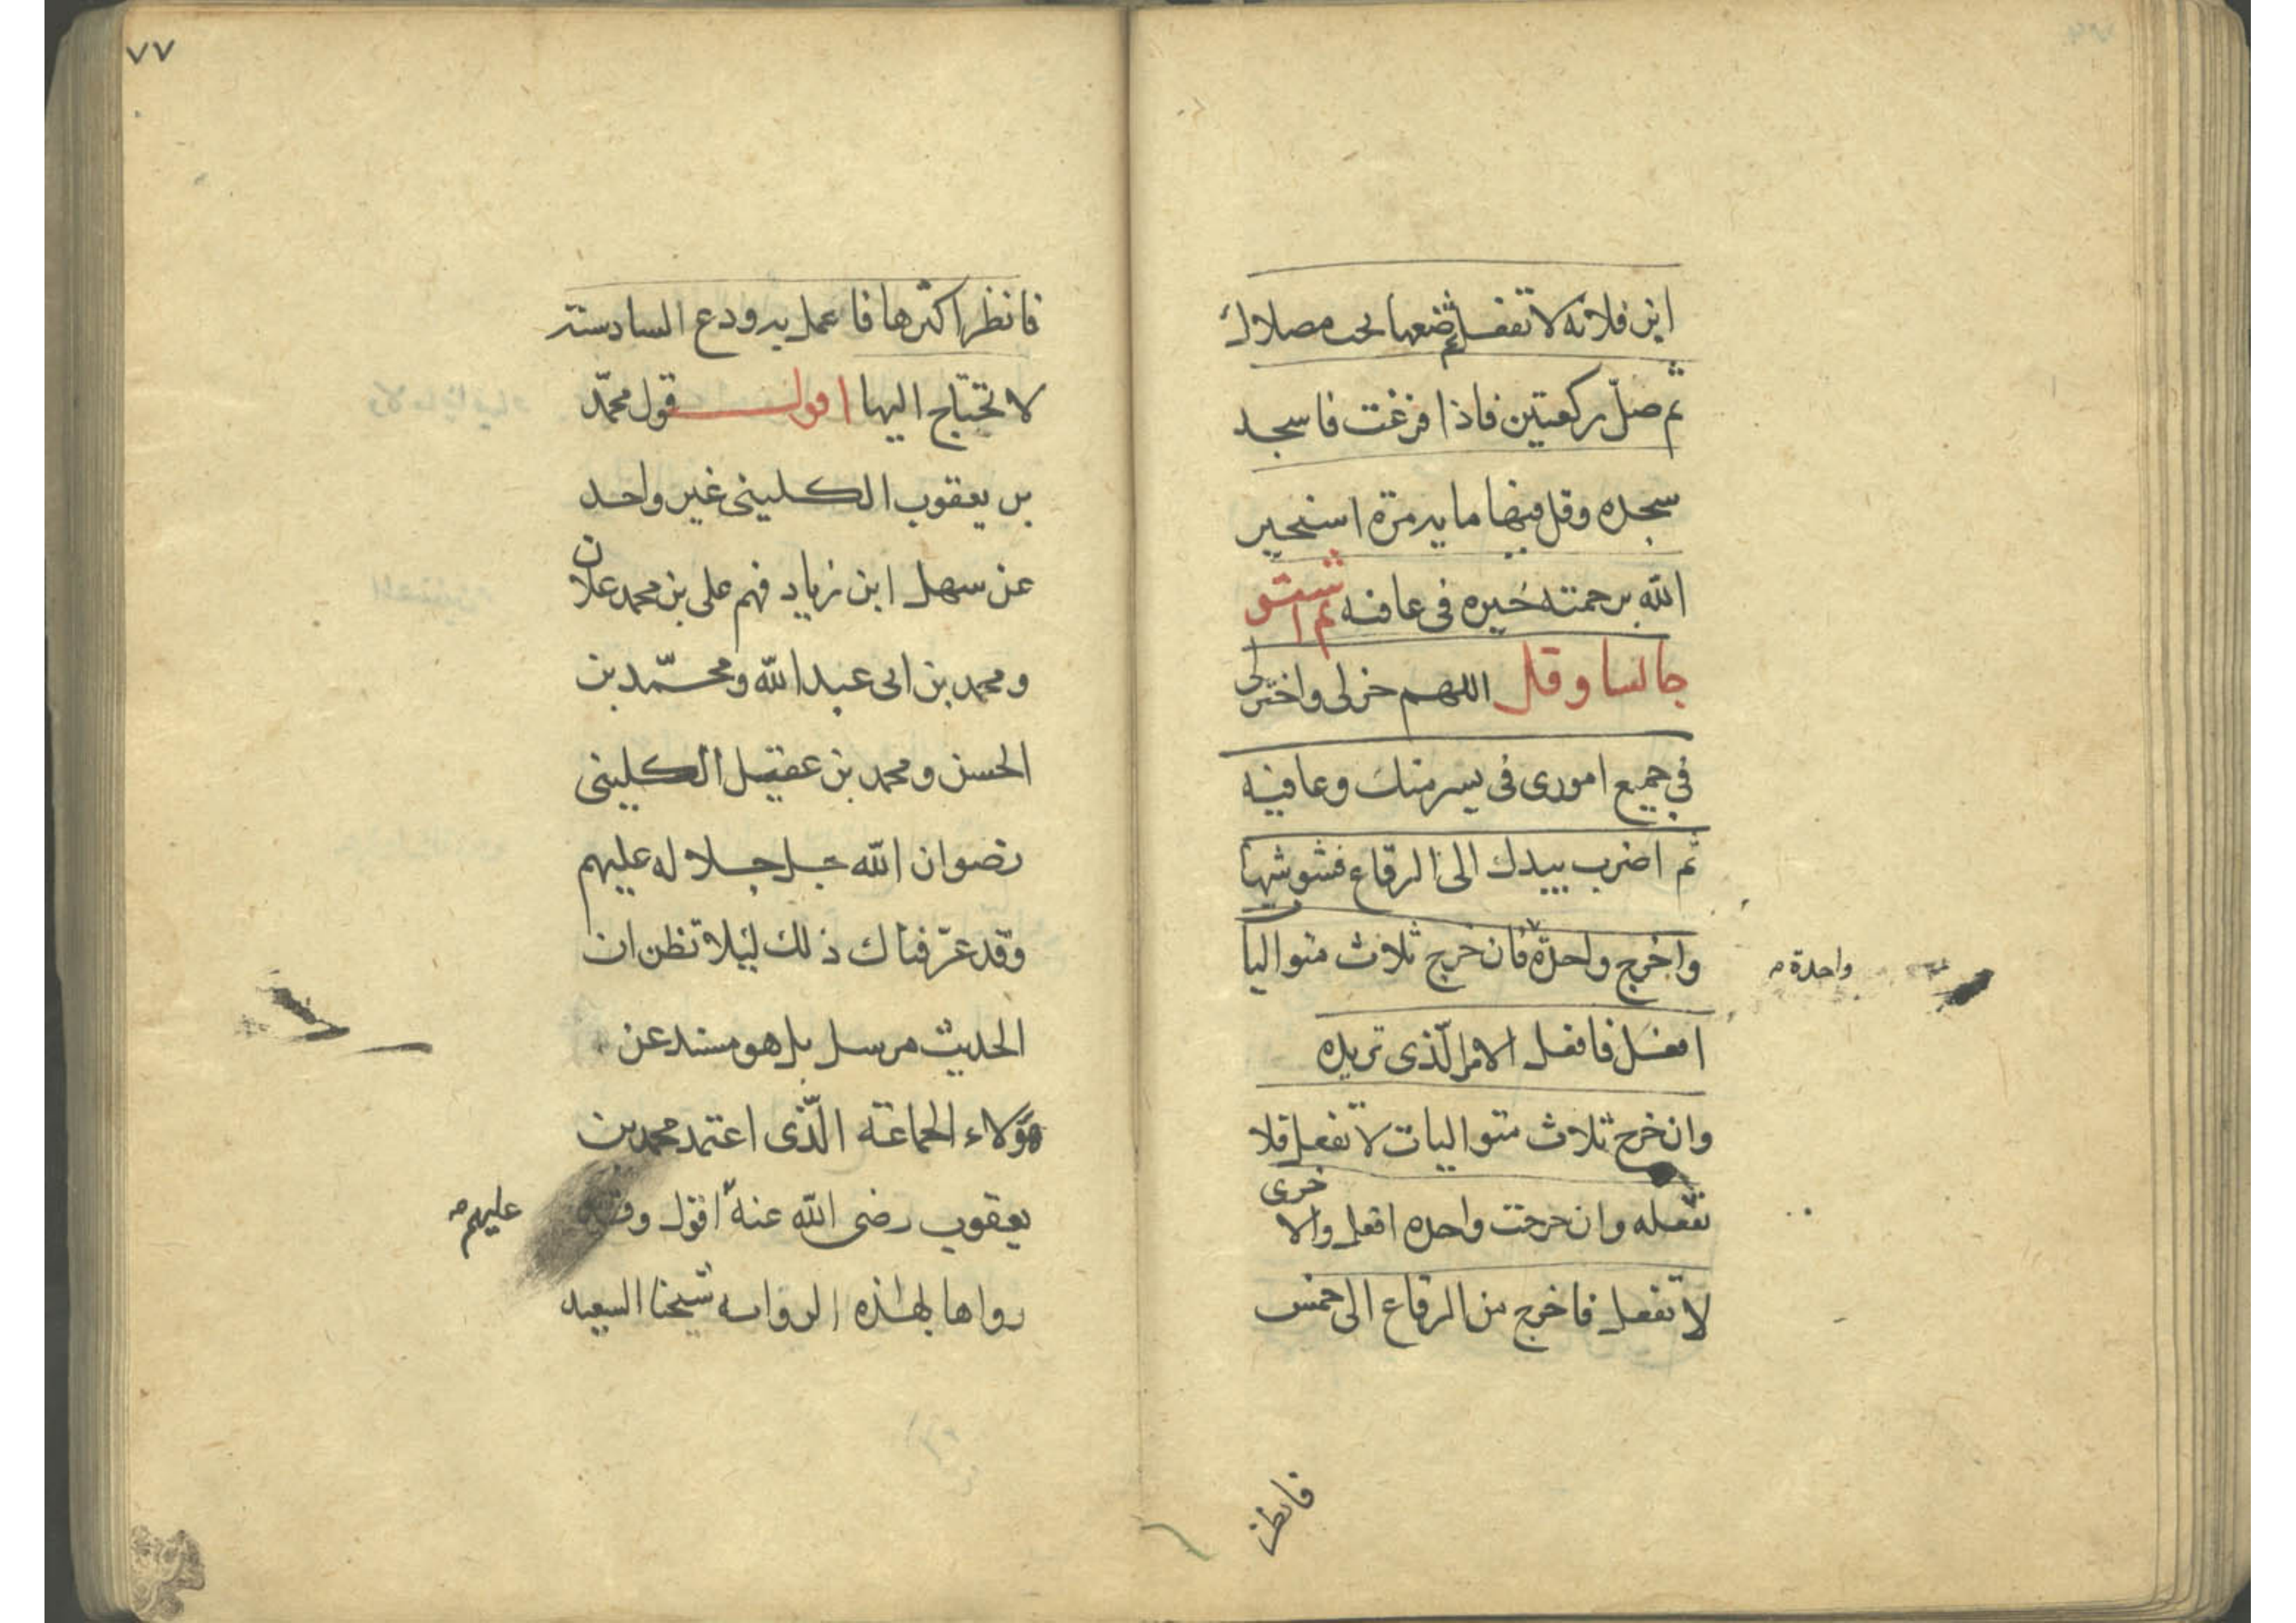 ابن فلانه لا تفعل ثم ضعها تحت مصلاك
ثم صلّ ركعتين فاذا فرغت فاسجد
سجده وقل فيها مايه مرّة استخير
الله برحمته خيره فى عافيه ثم استو
جالسا وقل اللهم خر لى واختر لى
في جميع امورى فى يسر منك وعافيه
ثم اضرب بيدك الى الرقاع فشوشها
واخرج واحدة فان خرج ثلاث متواليا
افعل فافعل الامر الّذى تريده
وان خرج ثلاث متواليات لا تفعل فلا
تفعله وان خرجت واحده افعل والاخرى
لا تفعل فاخرج من الرقاع الى خمس
واحدة
فانظر
٧٧
فانظر اكثرها فاعمل به ودع السادسته
لا تحتاج اليها اقول قول محمّد
بن يعقوب الكلينى غير واحد
عن سهل ابن زياد فهم على بن محمد علان
ومحمد بن ابى عبد الله ومحمّد بن
الحسن ومحمد بن عقيل الكلينى
رضوان الله جل جلاله عليهم
وقد عرّفناك ذلك ليلا تظن ان
الحديث مرسل بل هو مسند عن
هؤلاء الجماعة الّذى اعتمد محمد بن
يعقوب رضى الله عنه اقول وقد
عليهم
رواها بهذه الروايه شيخنا السعيد